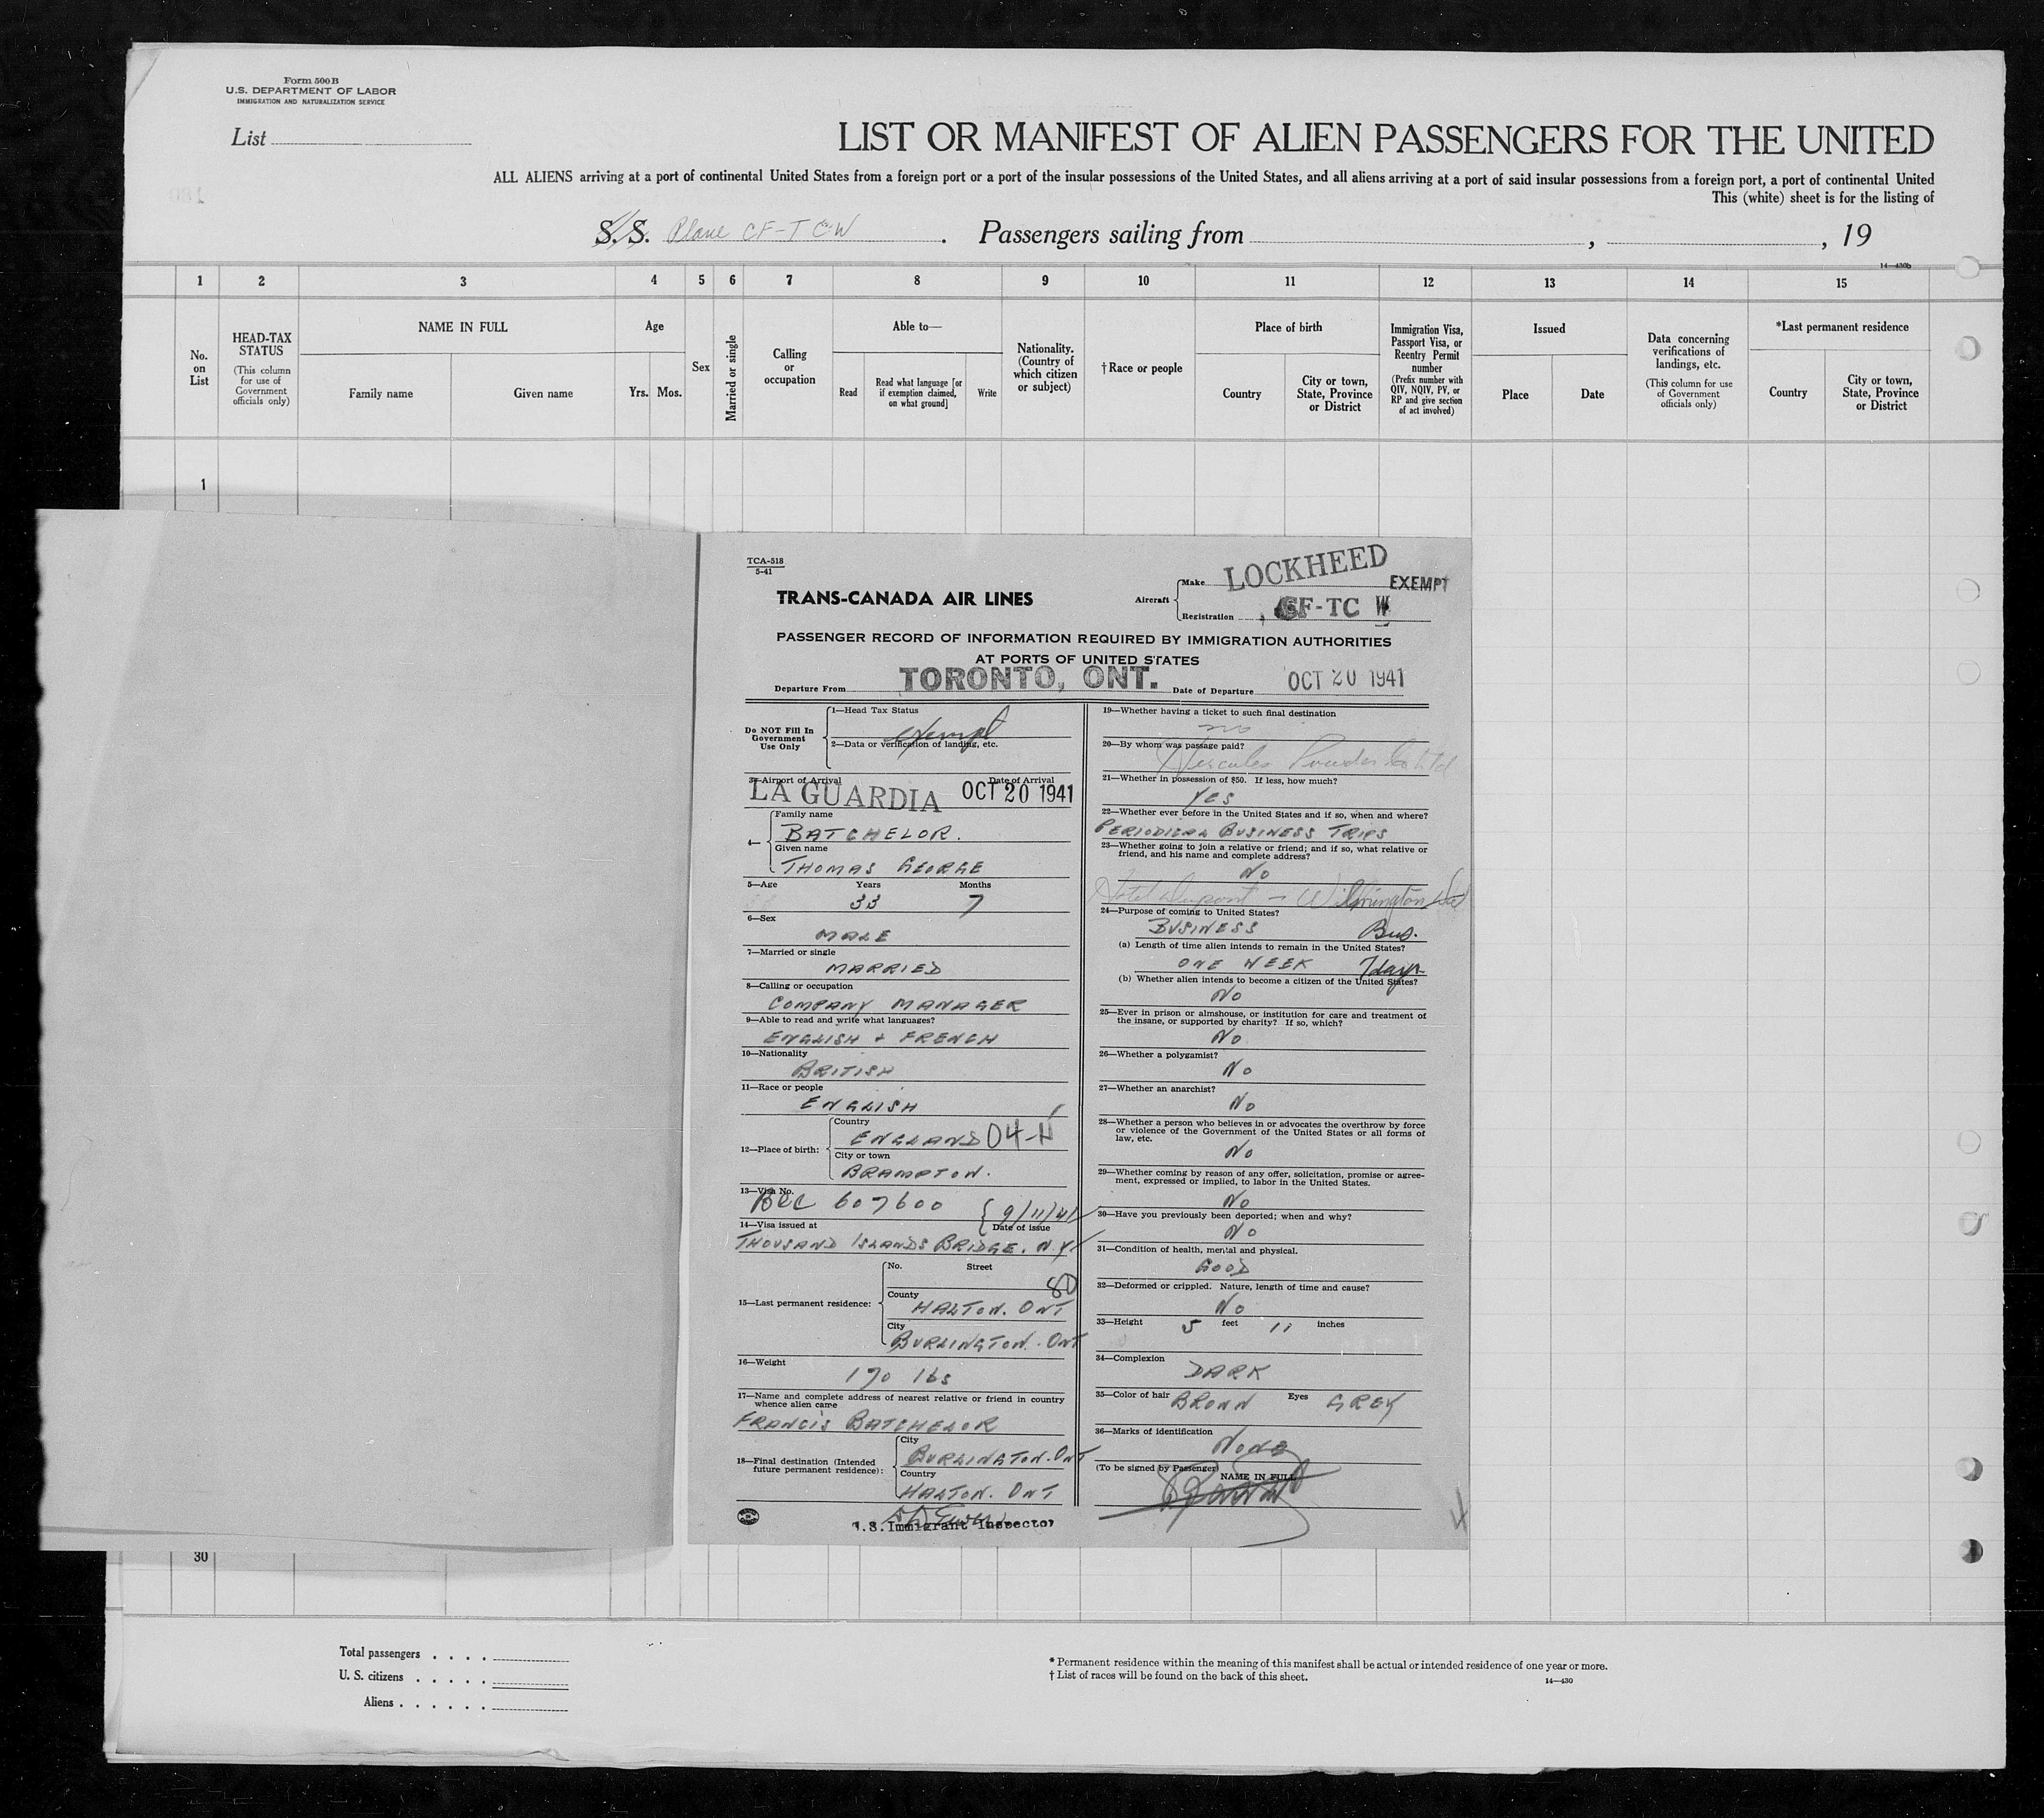 Form 500B
U.S. DEPARTMENT OF LABOR
IMMIGRATION AND NATURALIZATION SERVICE
List
LIST OR MANIFEST OF ALIEN PASSENGERS FOR THE UNITED
ALL ALIENS arriving at a port of continental United States from a foreign port or a port of the insular possessions of the United States, and all aliens arriving at a port of said insular possessions from a foreign port, a port of continental United
This (white) sheet is for the listing of
S. S. Plane CF-TCW . Passengers sailing from , , 19
14—430b
1 2 3 4 5 6 7 8 9 10 11 12 13 14 15
No. on List
HEAD-TAX STATUS (This column for use of Government officials only)
NAME IN FULL
Family name Given name
Age
Yrs. Mos.
Sex
Married or single
Calling or occupation
Able to—
Read
Read what language [or if exemption claimed, on what ground]
Write
Nationality. (Country of which citizen or subject)
†Race or people
Place of birth
Country
City or town, State, Province or District
Immigration Visa, Passport Visa, or Reentry Permit number (Prefix number with QIV, NQIV, PV, or RP and give section of act involved)
Issued
Place Date
Data concerning verifications of landings, etc. (This column for use of Government officials only)
*Last permanent residence
Country
City or town, State, Province or District
1
TCA-518
5-41
TRANS-CANADA AIR LINES
Aircraft
Make LOCKHEED
EXEMPT
Registration CF-TC W
PASSENGER RECORD OF INFORMATION REQUIRED BY IMMIGRATION AUTHORITIES
AT PORTS OF UNITED STATES
Departure From TORONTO, ONT. Date of Departure OCT 20 1941
Do NOT Fill In Government Use Only
1—Head Tax Status
exempt
2—Data or verification of landing, etc.
3—Airport of Arrival Date of Arrival
LA GUARDIA OCT 20 1941
4—
Family name
BATCHELOR.
Given name
THOMAS GEORGE
5—Age Years Months
33 7
6—Sex
MALE
7—Married or single
MARRIED
8—Calling or occupation
COMPANY MANAGER
9—Able to read and write what languages?
ENGLISH + FRENCH
10—Nationality
BRITISH
11—Race or people
ENGLISH
12—Place of birth:
Country
ENGLAND 04-
City or town
BRAMPTON.
13—Visa No.
BCC 607600 9/11/41
14—Visa issued at Date of issue
THOUSAND ISLANDS BRIDGE. N.Y.
15—Last permanent residence:
No. Street
80
County
HALTON. ONT
City
BURLINGTON. ONT
16—Weight
170 lbs
17—Name and complete address of nearest relative or friend in country
whence alien came
FRANCIS BATCHELOR
18—Final destination (Intended future permanent residence):
City
BURLINGTON. ONT
Country
HALTON. ONT
U.S. Immigrant Inspector
19—Whether having a ticket to such final destination
no
20—By whom was passage paid?
Hercules Powder Co Ltd
21—Whether in possession of $50. If less, how much?
YES
22—Whether ever before in the United States and if so, when and where?
PERIODICAL BUSINESS TRIPS
23—Whether going to join a relative or friend; and if so, what relative or
friend, and his name and complete address?
NO
Hotel Dupont - Wilmington Del
24—Purpose of coming to United States?
BUSINESS Bus.
(a) Length of time alien intends to remain in the United States?
ONE WEEK 7 days
(b) Whether alien intends to become a citizen of the United States?
NO
25—Ever in prison or almshouse, or institution for care and treatment of
the insane, or supported by charity? If so, which?
NO
26—Whether a polygamist?
NO
27—Whether an anarchist?
NO
28—Whether a person who believes in or advocates the overthrow by force
or violence of the Government of the United States or all forms of
law, etc.
NO
29—Whether coming by reason of any offer, solicitation, promise or agree-
ment, expressed or implied, to labor in the United States.
NO
30—Have you previously been deported; when and why?
NO
31—Condition of health, mental and physical.
GOOD
32—Deformed or crippled. Nature, length of time and cause?
NO
33—Height 5 feet 11 inches
34—Complexion
DARK
35—Color of hair BROWN Eyes GREY
36—Marks of identification
NONE
(To be signed by Passenger)
NAME IN FULL
30
Total passengers . . . .
U. S. citizens . . . . .
Aliens . . . . . .
* Permanent residence within the meaning of this manifest shall be actual or intended residence of one year or more.
† List of races will be found on the back of this sheet.
14—430